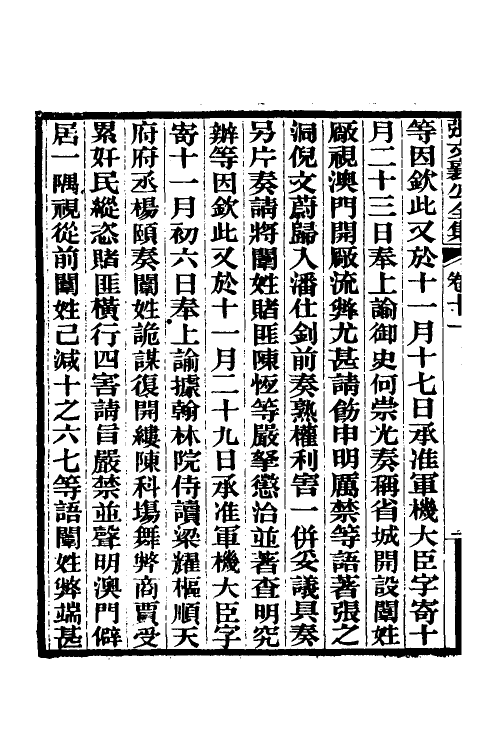 張文襄公全集 卷十一
等因欽此又於十一月十七日承准軍機大臣字寄十
月二十三日奉上諭御史何崇光奏稱省城開設闈姓
廠視澳門開廠流弊尤甚請飭申明厲禁等語著張之
洞倪文蔚歸入潘仕釗前奏熟權利害一併妥議具奏
另片奏請將闈姓賭匪陳恆等嚴拏懲治並著查明究
辦等因欽此又於十一月二十九日承准軍機大臣字
寄十一月初六日奉上諭據翰林院侍讀梁耀樞順天
府府丞楊頤奏闈姓詭謀復開縷陳科場舞弊商賈受
累奸民縱恣賭匪橫行四害請旨嚴禁並聲明澳門僻
居一隅視從前闈姓已減十之六七等語闈姓弊端甚